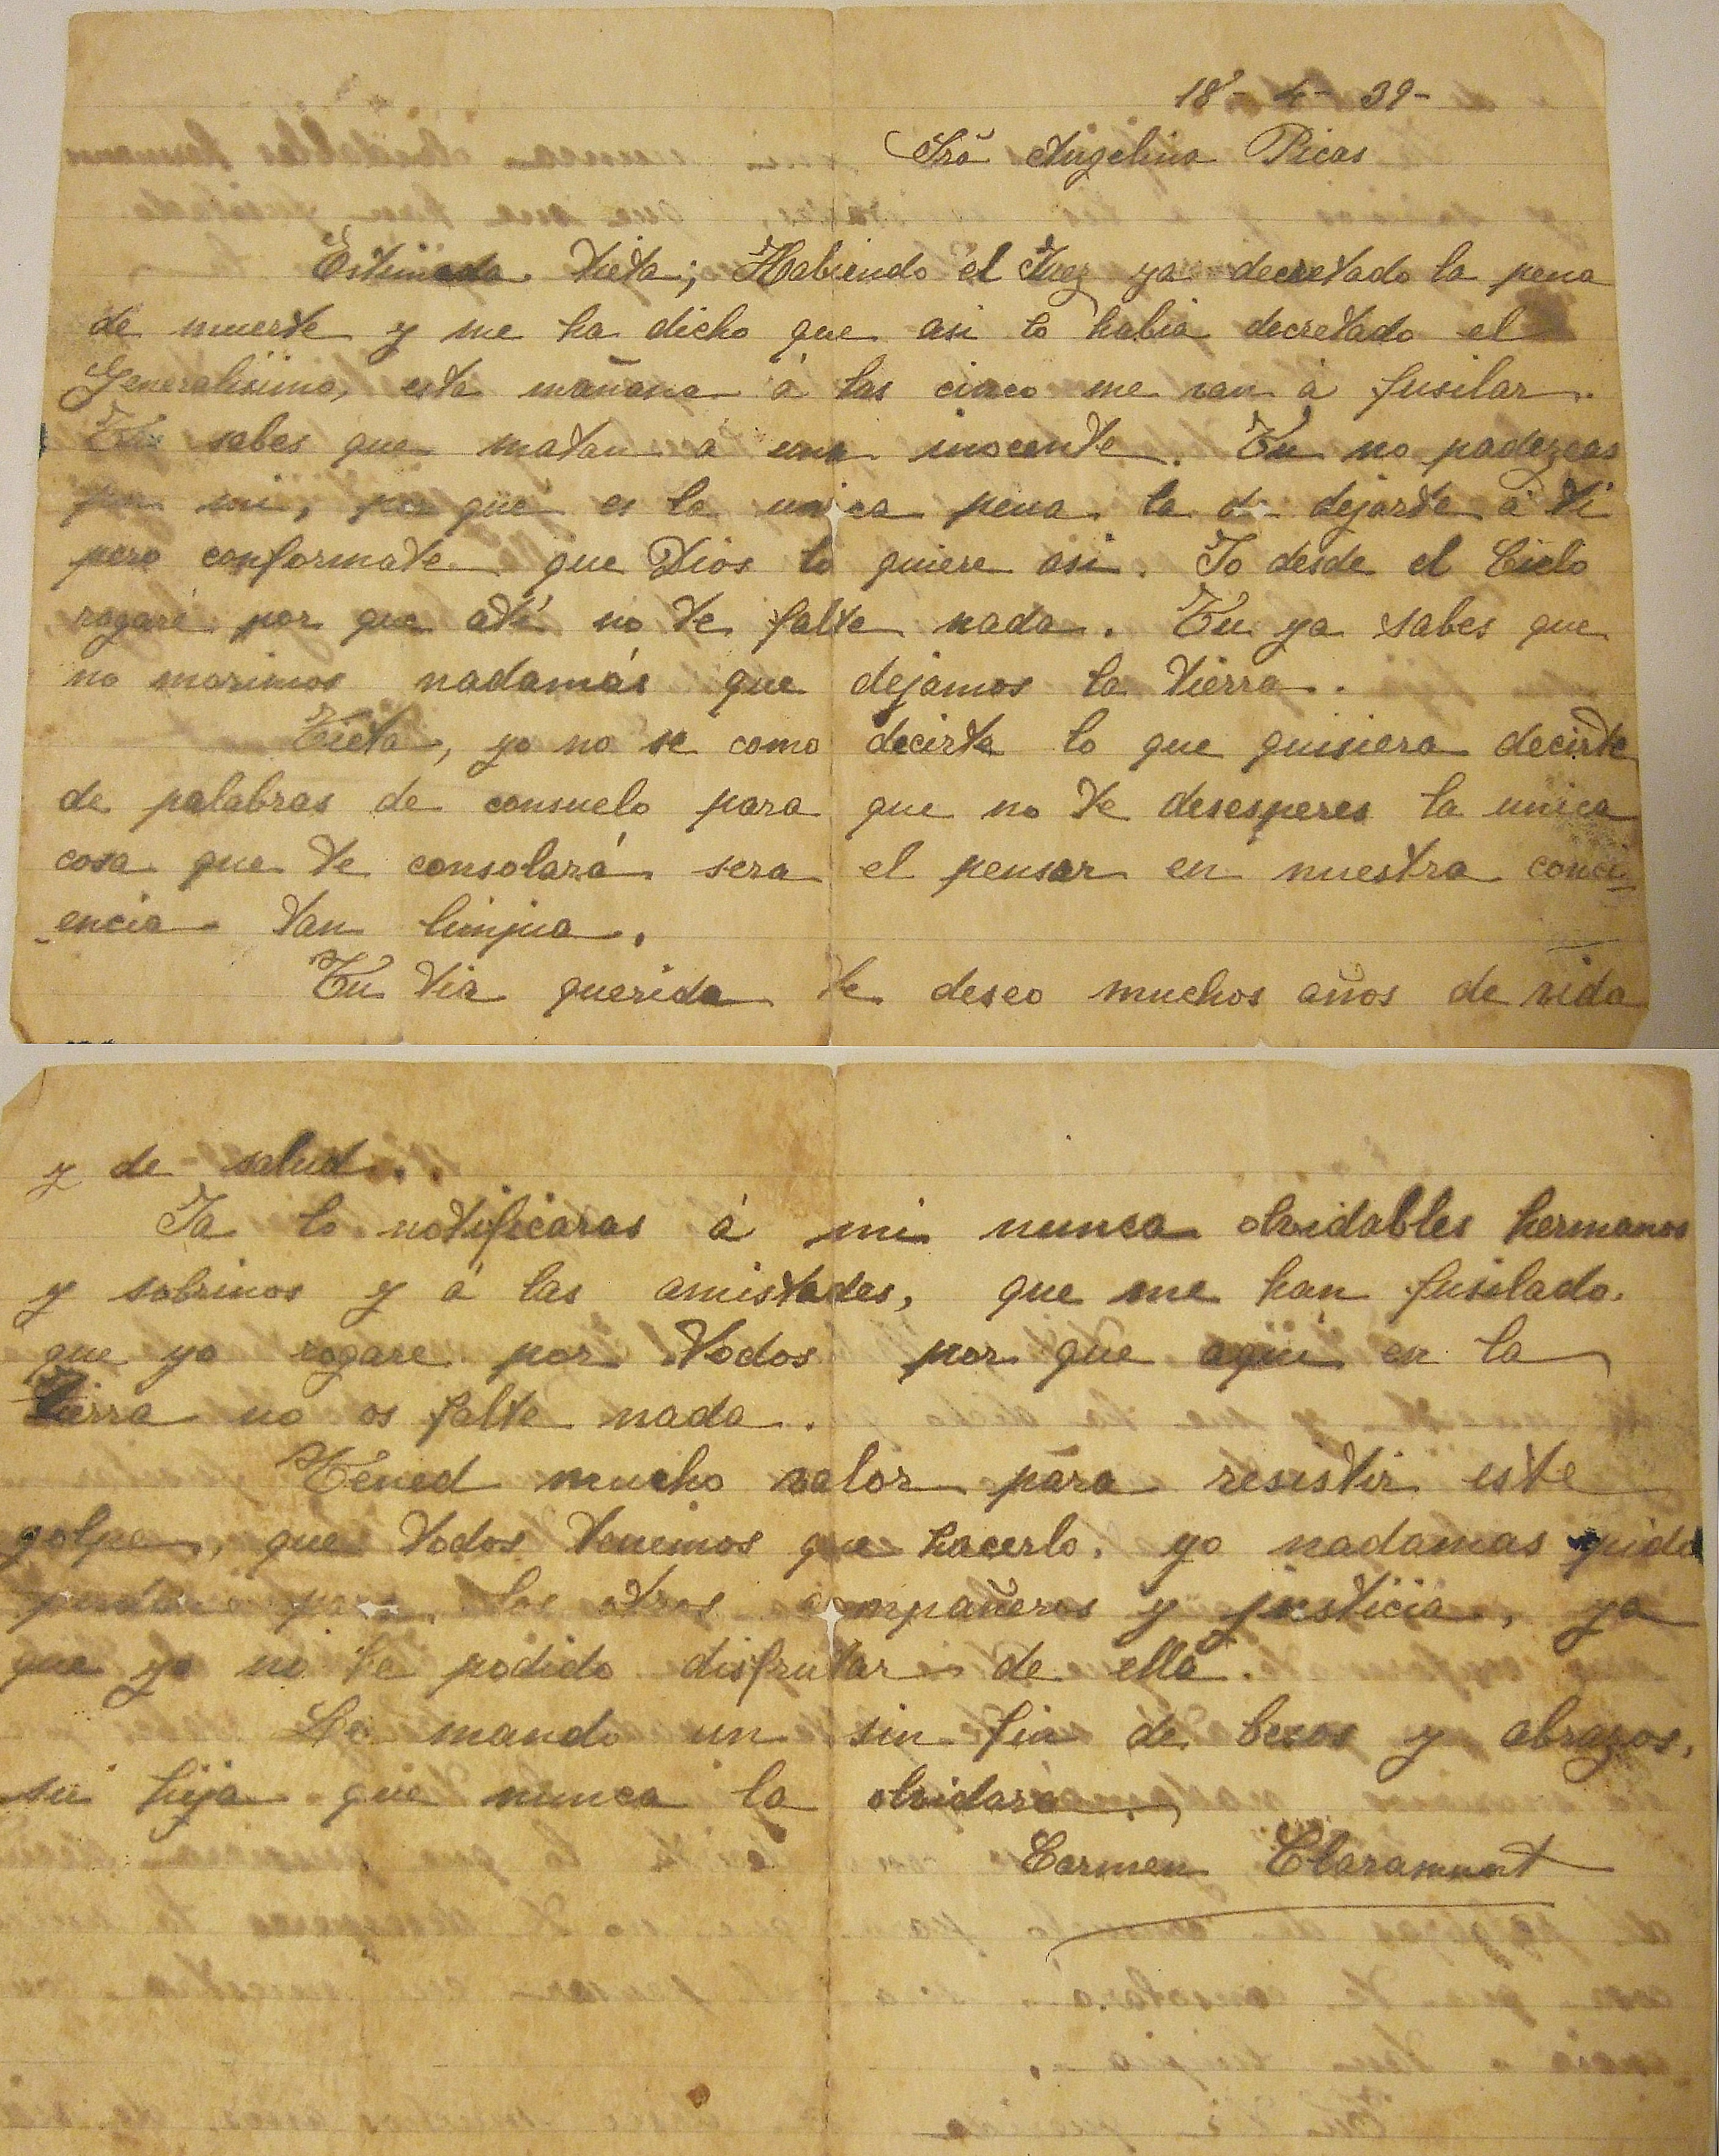 18- 4- 39-
Srã Angelina Picas
Estimada Tieta; Habiendo el Juez ya decretado la pena
de muerte y me ha dicho que asi lo habia decretado el
Generalisimo, esta mañana á las cinco me van á fusilar.
Tu sabes que matan á una inocente. Tu no padezcas
por mi, por que es la unica pena la de dejarte á ti
pero conformate que Dios lo quiere asi. Io desde el Cielo
rogaré por que atí no te falte nada. Tu ya sabes que
no morimos nadamás que dejamos la tierra.
Tieta, yo no se como decirte lo que quisiera decirte
de palabras de consuelo para que no te desesperes la unica
cosa que te consolará sera el pensar en nuestra conci-
-encia tan limpia.
Tu tia querida te deseo muchos años de vida
y de salud.
Ia lo notificaras á mi nunca olvidables hermanos
y sobrinos y á las amistades, que me han fusilado.
que yo rogare por todos por que aqui en la
tierra no os falte nada.
Tened mucho valor para resistir este
golpe, que todos tenemos que hacerlo. yo nadamas pido
para los otros compañeros y justicia, ya
que yo ni he podido disfrutar de ella.
Le mando un sin fin de besos y abrazos,
su hija que nunca la olvidara
Carmen Claramunt